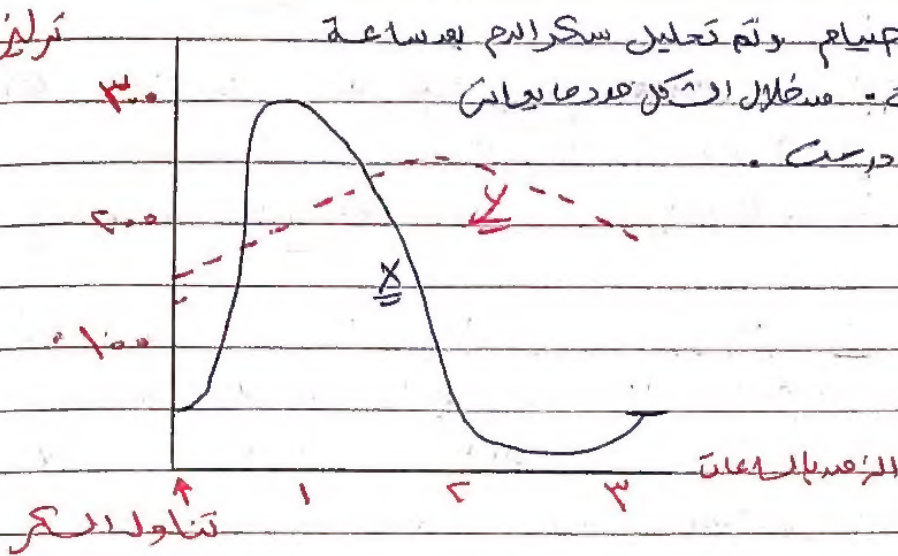 صيام وتم تحليل سكر الدم بعد ساعة
من خلال الشكل حدد ما يعاني
درست .
٣٠٠
٢٠٠
١٠٠
Y
X
الزمن بالساعات
١ ٢ ٣
تناول السكر